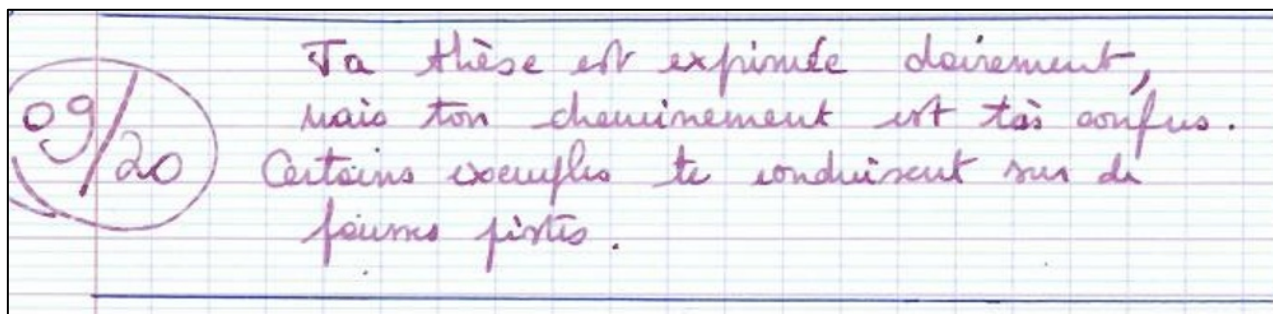 09/20
Ta thèse est exprimée clairement,
mais ton cheminement est très confus.
Certains exemples te conduisent sur de
fausses pistes.